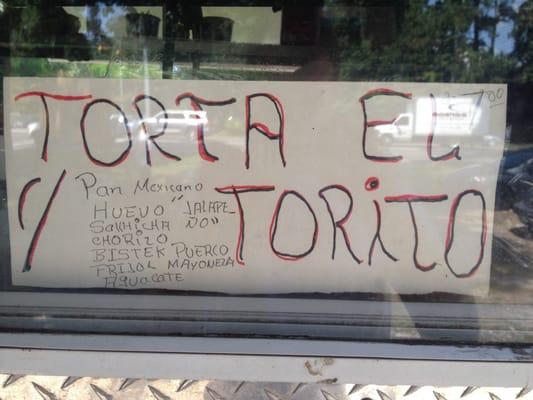 TORTA EL 7.00
% Pan Mexicano TORiTO
HUEVO "JALAPE
SAlchiCHA ÑO"
CHORIZO
BISTEK PUERCO
FRIJOL MAYONEZA
AguacATE